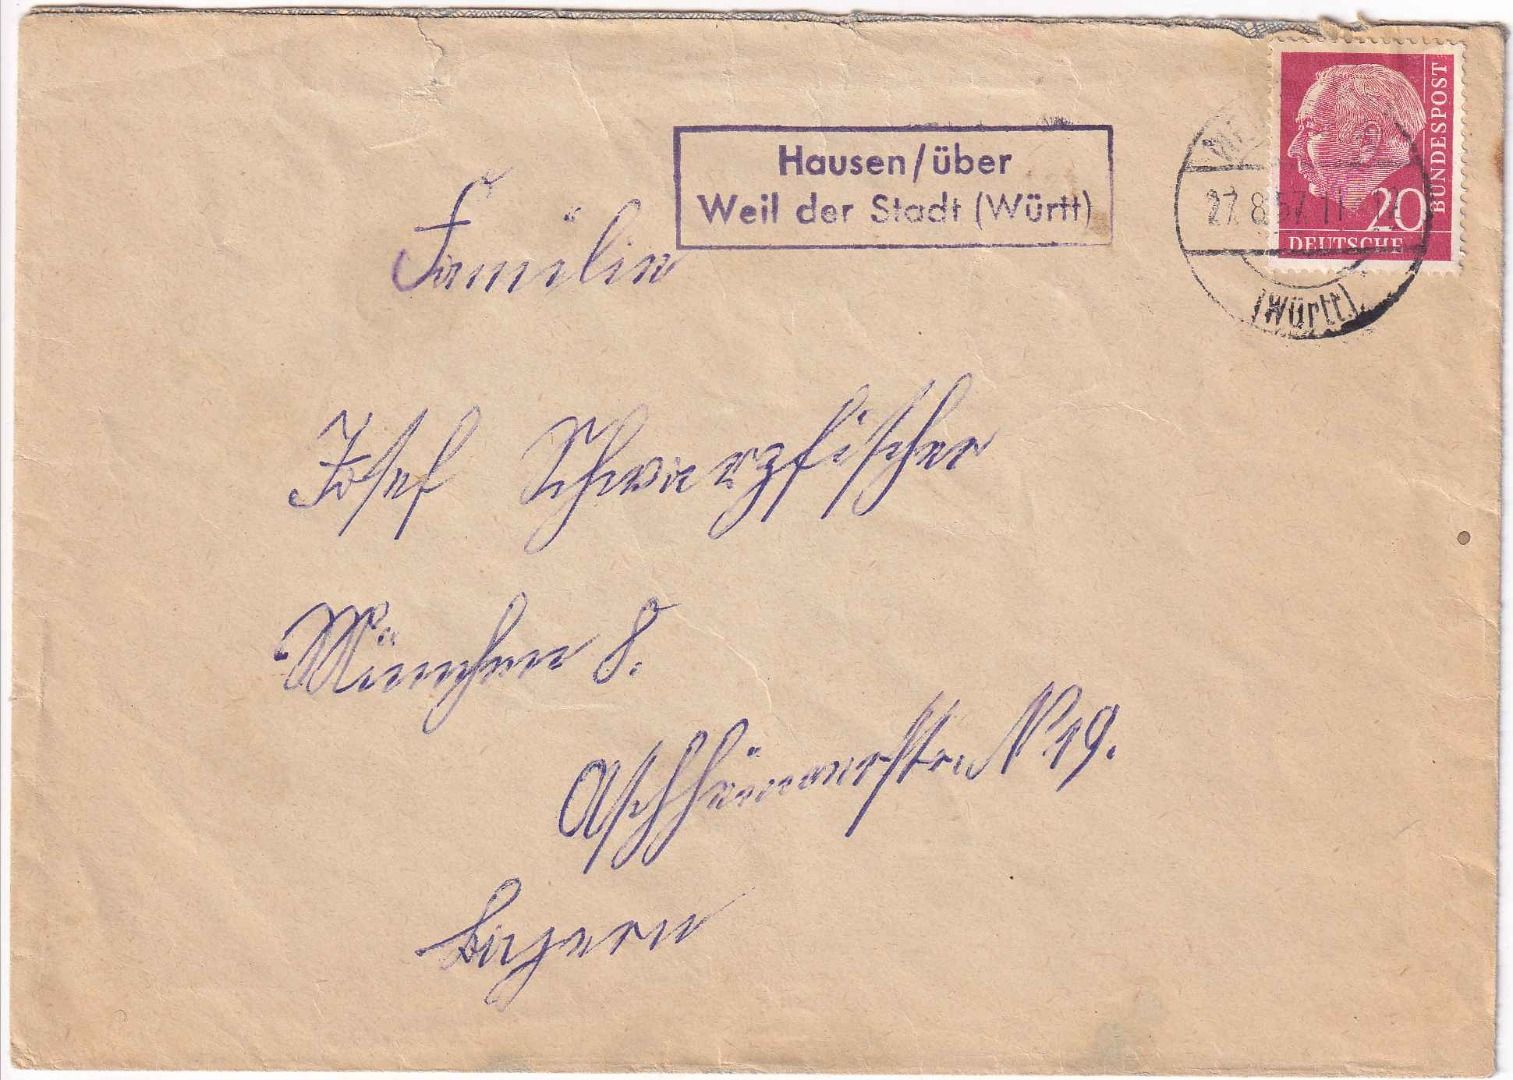 Hausen/über
Weil der Stadt (Württ)
27.8.57.11
(Württ).
20
DEUTSCHE
BUNDESPOST
Familie
Josef Schwarzfischer
München 8.
Aschheimerstr. Nr 19.
Bayern